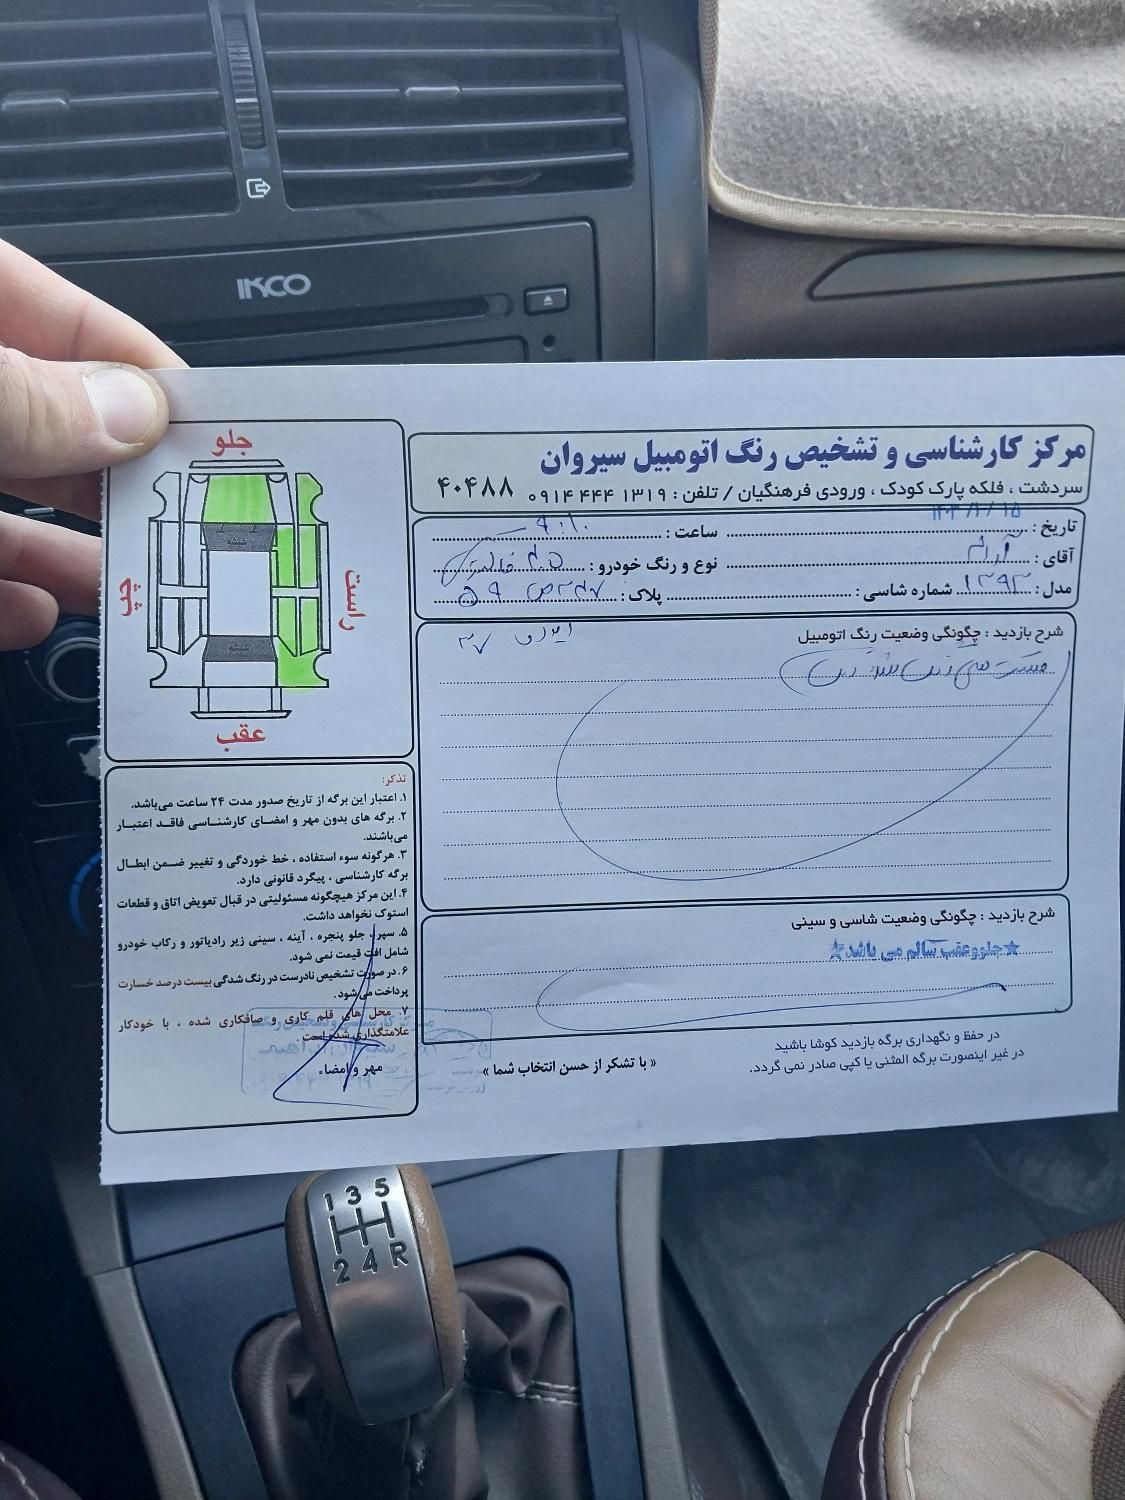 IKCO
مرکز کارشناسی و تشخیص رنگ اتومبیل سیروان
سردشت ، فلکه پارک کودک ، ورودی فرهنگیان / تلفن : ۱۳۱۹ ۴۴۴ ۰۹۱۴
۴۰۴۸۸
تاریخ : ساعت : ۹:۱۰
آقای : نوع و رنگ خودرو :
مدل : ۱۳۹۳ شماره شاسی : پلاک :
شرح بازدید : چگونگی وضعیت رنگ اتومبیل
ایران ۳۷
شرح بازدید : چگونگی وضعیت شاسی و سینی
جلووعقب سالم می باشد
در حفظ و نگهداری برگه بازدید کوشا باشید
در غیر اینصورت برگه المثنی یا کپی صادر نمی گردد.
« با تشکر از حسن انتخاب شما »
جلو
شیشه
راست
چپ
شیشه
عقب
تذکر:
۱. اعتبار این برگه از تاریخ صدور مدت ۲۴ ساعت می‌باشد.
۲. برگه های بدون مهر و امضای کارشناسی فاقد اعتبار
می‌باشند.
۳. هرگونه سوء استفاده ، خط خوردگی و تغییر ضمن ابطال
برگه کارشناسی ، پیگرد قانونی دارد.
۴. این مرکز هیچگونه مسئولیتی در قبال تعویض اتاق و قطعات
استوک نخواهد داشت.
۵. سپر ، جلو پنجره ، آینه ، سینی زیر رادیاتور و رکاب خودرو
شامل افت قیمت نمی شود.
۶. در صورت تشخیص نادرست در رنگ شدگی بیست درصد خسارت
پرداخت می‌شود.
۷. محل های قلم کاری و صافکاری شده ، با خودکار
علامتگذاری شده است.
مهر و امضاء
1 3 5
2 4 R